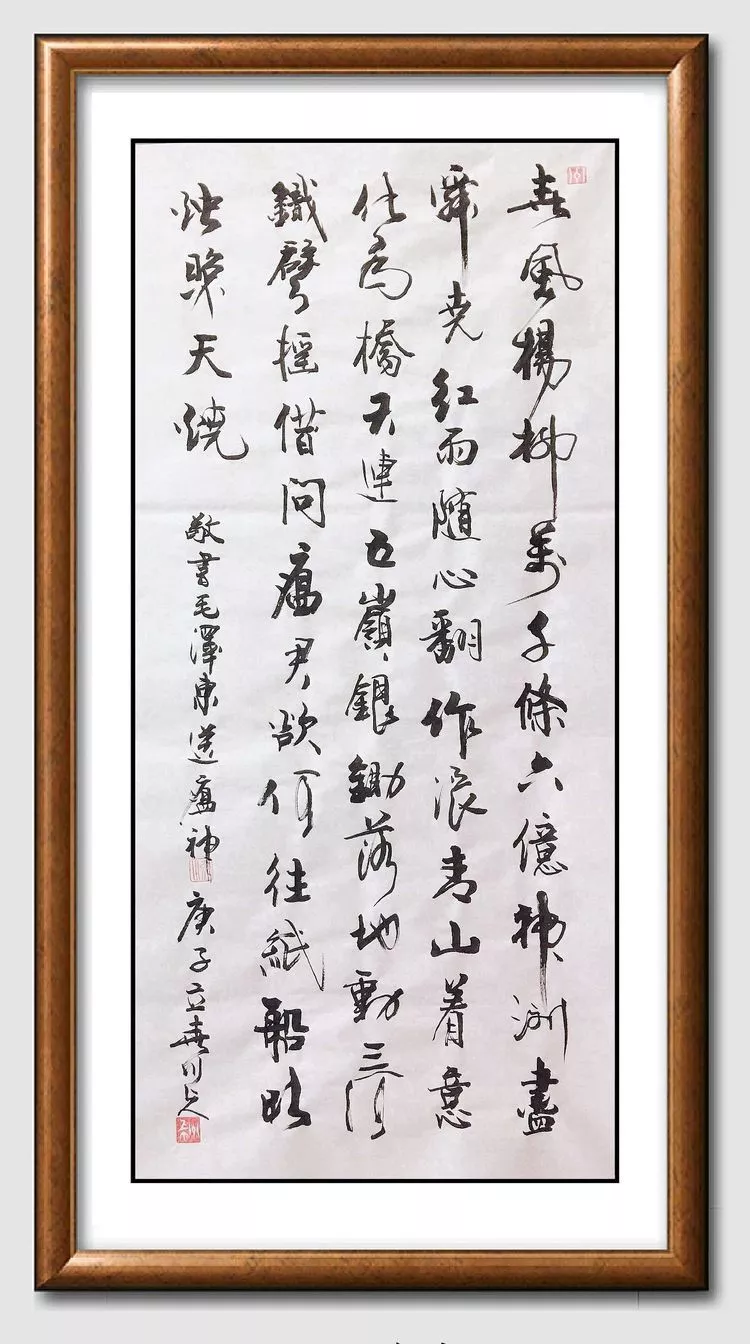 春風楊柳萬千條六億神洲盡
舜堯紅雨随心翻作浪青山着意
化為橋天連五嶺銀鋤落地動三河
鐵臂摇借問瘟君欲何往紙船明
燭照天燒
敬書毛澤東送瘟神 庚子立春川人